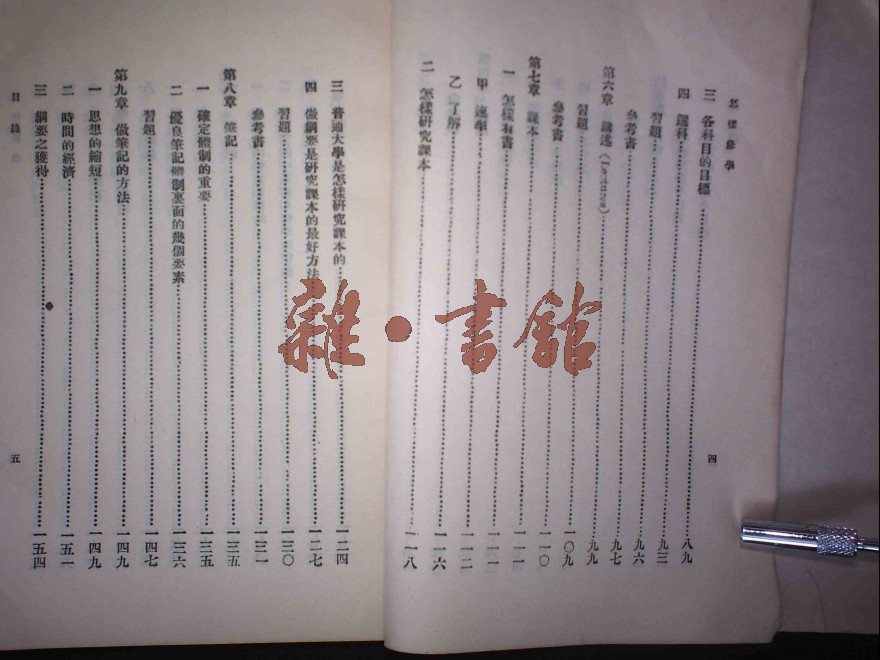 怎樣修學
三 各科目的目標……八九
四 選科……九三
習題……九六
參考書……九七
第六章 講述(Lectures)……九九
習題……一〇九
參考書……一一〇
第七章 課本……一一一
一 怎樣看書……一一一
甲 速率……一一二
乙 了解……一一六
二 怎樣研究課本……一一八
四
三 普通大學是怎樣研究課本的……一二四
四 做綱要是研究課本的最好方法……一二七
習題……一三〇
參考書……一三一
第八章 筆記……一三五
一 確定體制的重要……一三五
二 優良筆記體制裏面的幾個要素……一三六
習題……一四七
第九章 做筆記的方法……一四九
一 思想的縮短……一四九
二 時間的經濟……一五一
三 綱要之獲得……一五四
目錄
五
雜·書館